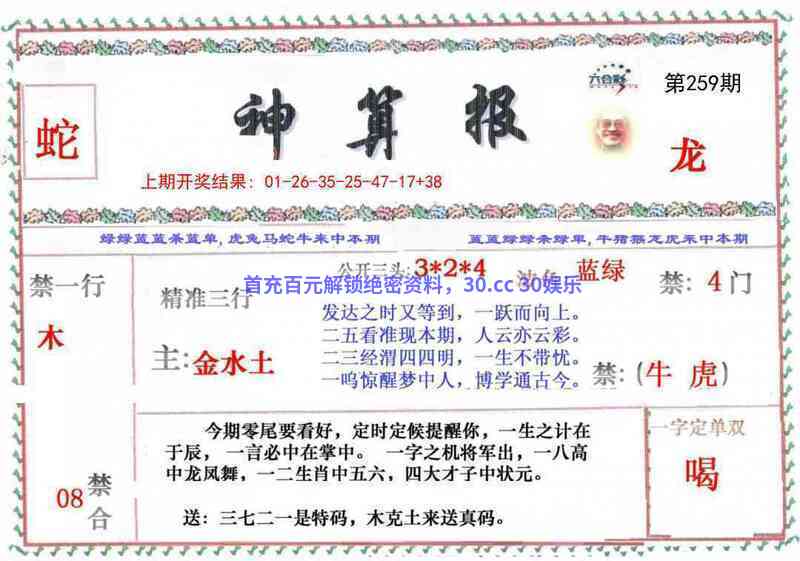 六合彩
第259期
蛇
神算报
龙
上期开奖结果：01-26-35-25-47-17+38
绿绿蓝蓝杀蓝单,虎兔马蛇牛来中本期
蓝蓝绿绿杀绿单,牛猪猴龙虎来中本期
公开三头:3*2*4
蓝绿
禁: 4门
首充百元解锁绝密资料，30.cc 30娱乐
禁一行
木
精准三行
主:金水土
发达之时又等到，一跃而向上。
二五看准现本期，人云亦云彩。
二三经渭四四明，一生不带忧。
一鸣惊醒梦中人，博学通古今。
禁:(牛 虎)
08
禁合
今期零尾要看好，定时定候提醒你，一生之计在
于辰，一言必中在掌中。 一字之机将军出，一八高
中龙凤舞，一二生肖中五六，四大才子中状元。
送：三七二一是特码，木克土来送真码。
一字定单双
喝